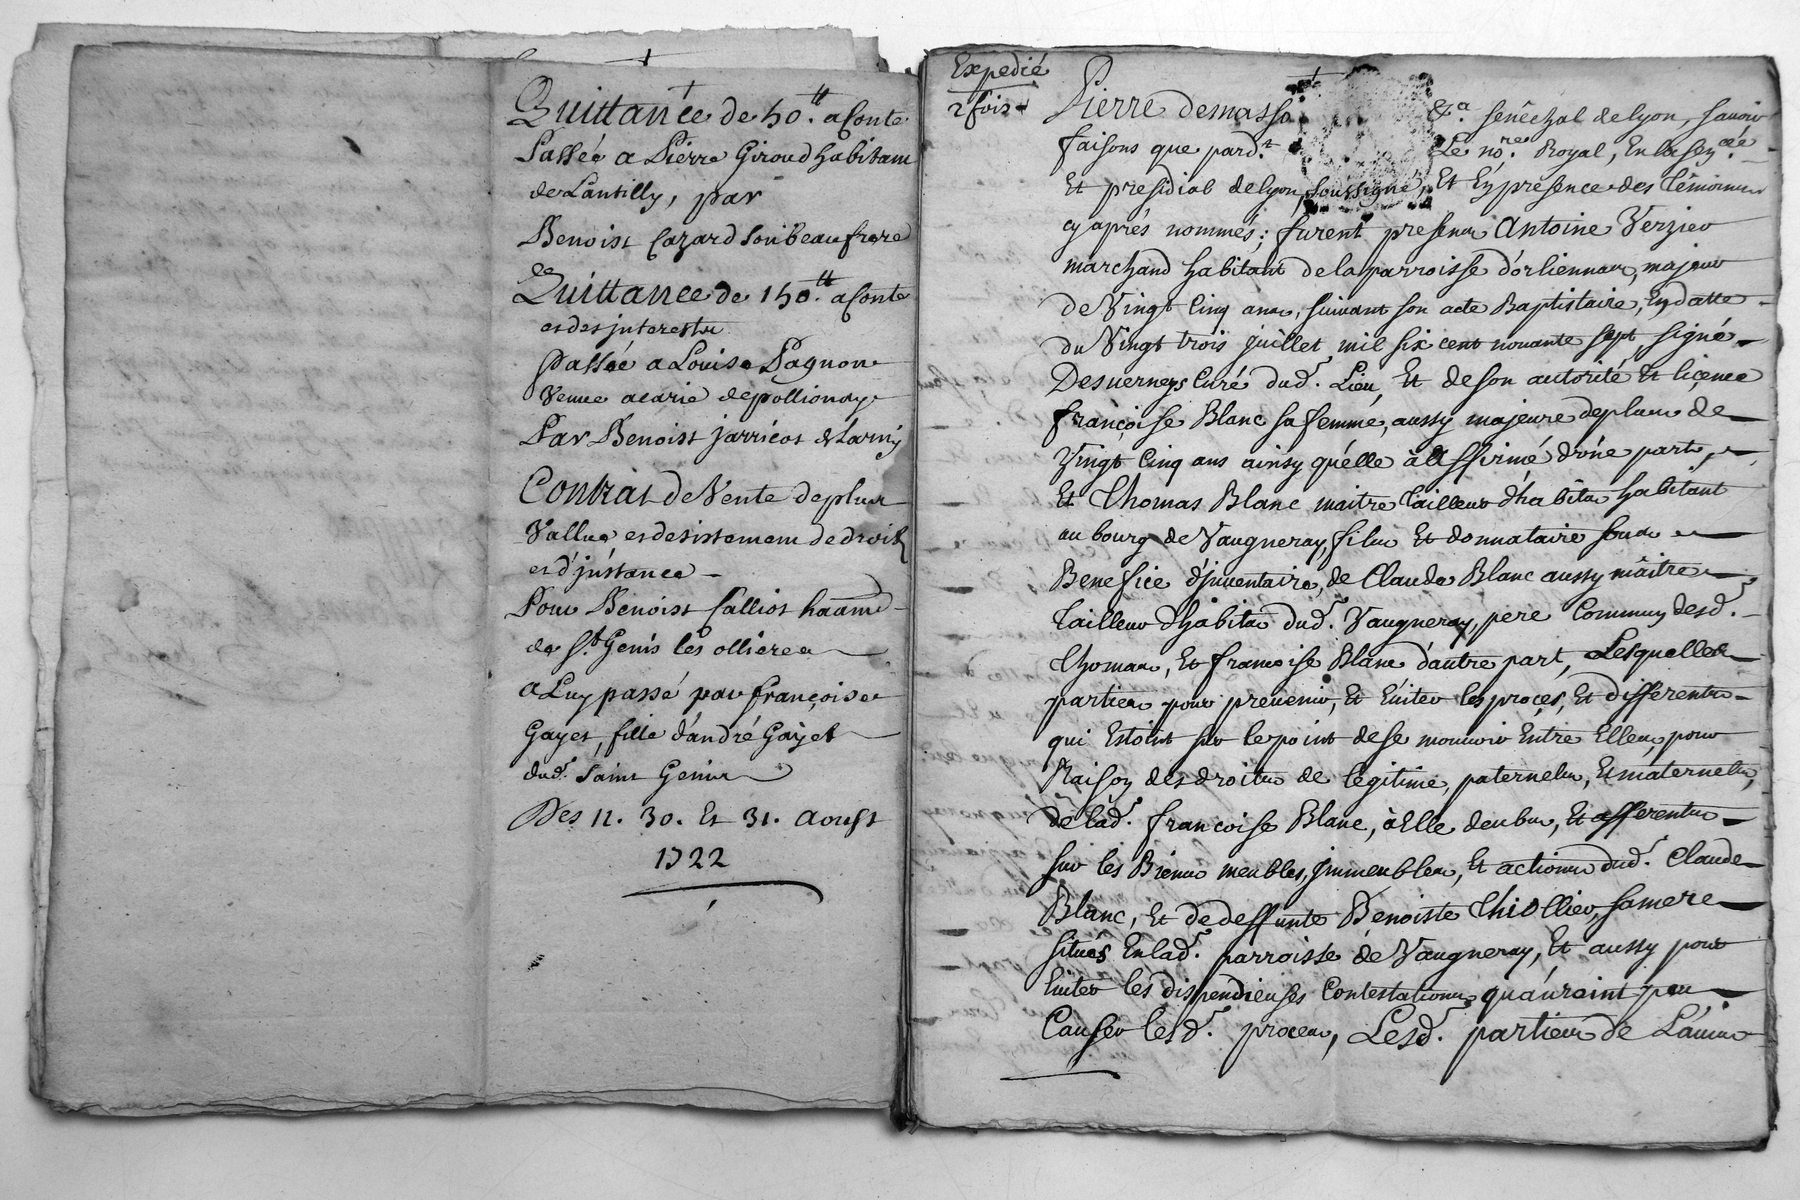 Quittance de 50.tt a Conte
Passée a Pierre Giroud habitant
de Lantilly, par
Benoist Cazard son beau frere
Quittance de 150.tt a Conte
et des jnterests
passée a Louise Pagnon
Veuve acarie de pollionay
Par Benoist jarricot de
Contrat de Vente de plus
Vallue et desistement de droits
et d'jnstance
Pour Benoist Calliot haant
de St. Genis les ollieres
a Luy passé par françoise
Gayet, fille d'andré Gayet
dud. Saint Genis
Des 11. 30. Et 31. Aoust
1722
Expedié
2 fois
Pierre demasso &a. sénéchal de lyon, savoir
faisons que pardt. Le nore. Royal, En la senée.
Et presidial de lyon, soussigné, Et En présence des témoins
cy aprés nommés; furent presens Antoine Verzier
marchand habitant de la parroisse d'orliennas, majeur
de Vingt Cinq ans, suivant son acte Baptistaire, En datte
du Vingt trois juillet mil six cent nonante sept, signé
Desverneys Curé dud. Lieu, Et de son autorité Et liçence
françoise Blanc sa femme, aussy majeure de plus de
Vingt Cinq ans ainsy qu'elle à affirmé d'une part,
Et Thomas Blanc maitre Tailleur d'habits habitant
au bourg de Vaugneray, fils Et donnataire sous
Benefice d'jnventaire, de Claude Blanc aussy maître
Tailleur d'habits dud. Vaugneray, pere Commun desd.
Thomas, Et françoise Blanc d'autre part, Lesquelles
parties pour prevenir, Et Eviter les proçes, Et differents
qui Estoint sur le point de se mouvoir Entre Elles, pour
Raison des droits de légitime, paternels, Et maternels,
de lad. françoise Blanc, à Elle deubs, Et afferents
sur les Biens meubles, jmmeubles, Et actions dud. Claude
Blanc, Et de deffunte Benoiste Thiollier, sa mere
situés En lad. parroisse de Vaugneray, Et aussy pour
Eviter les dispendieuses Contestations qu'auroint peu
Causer lesd. proces, Lesd. parties de L'avis